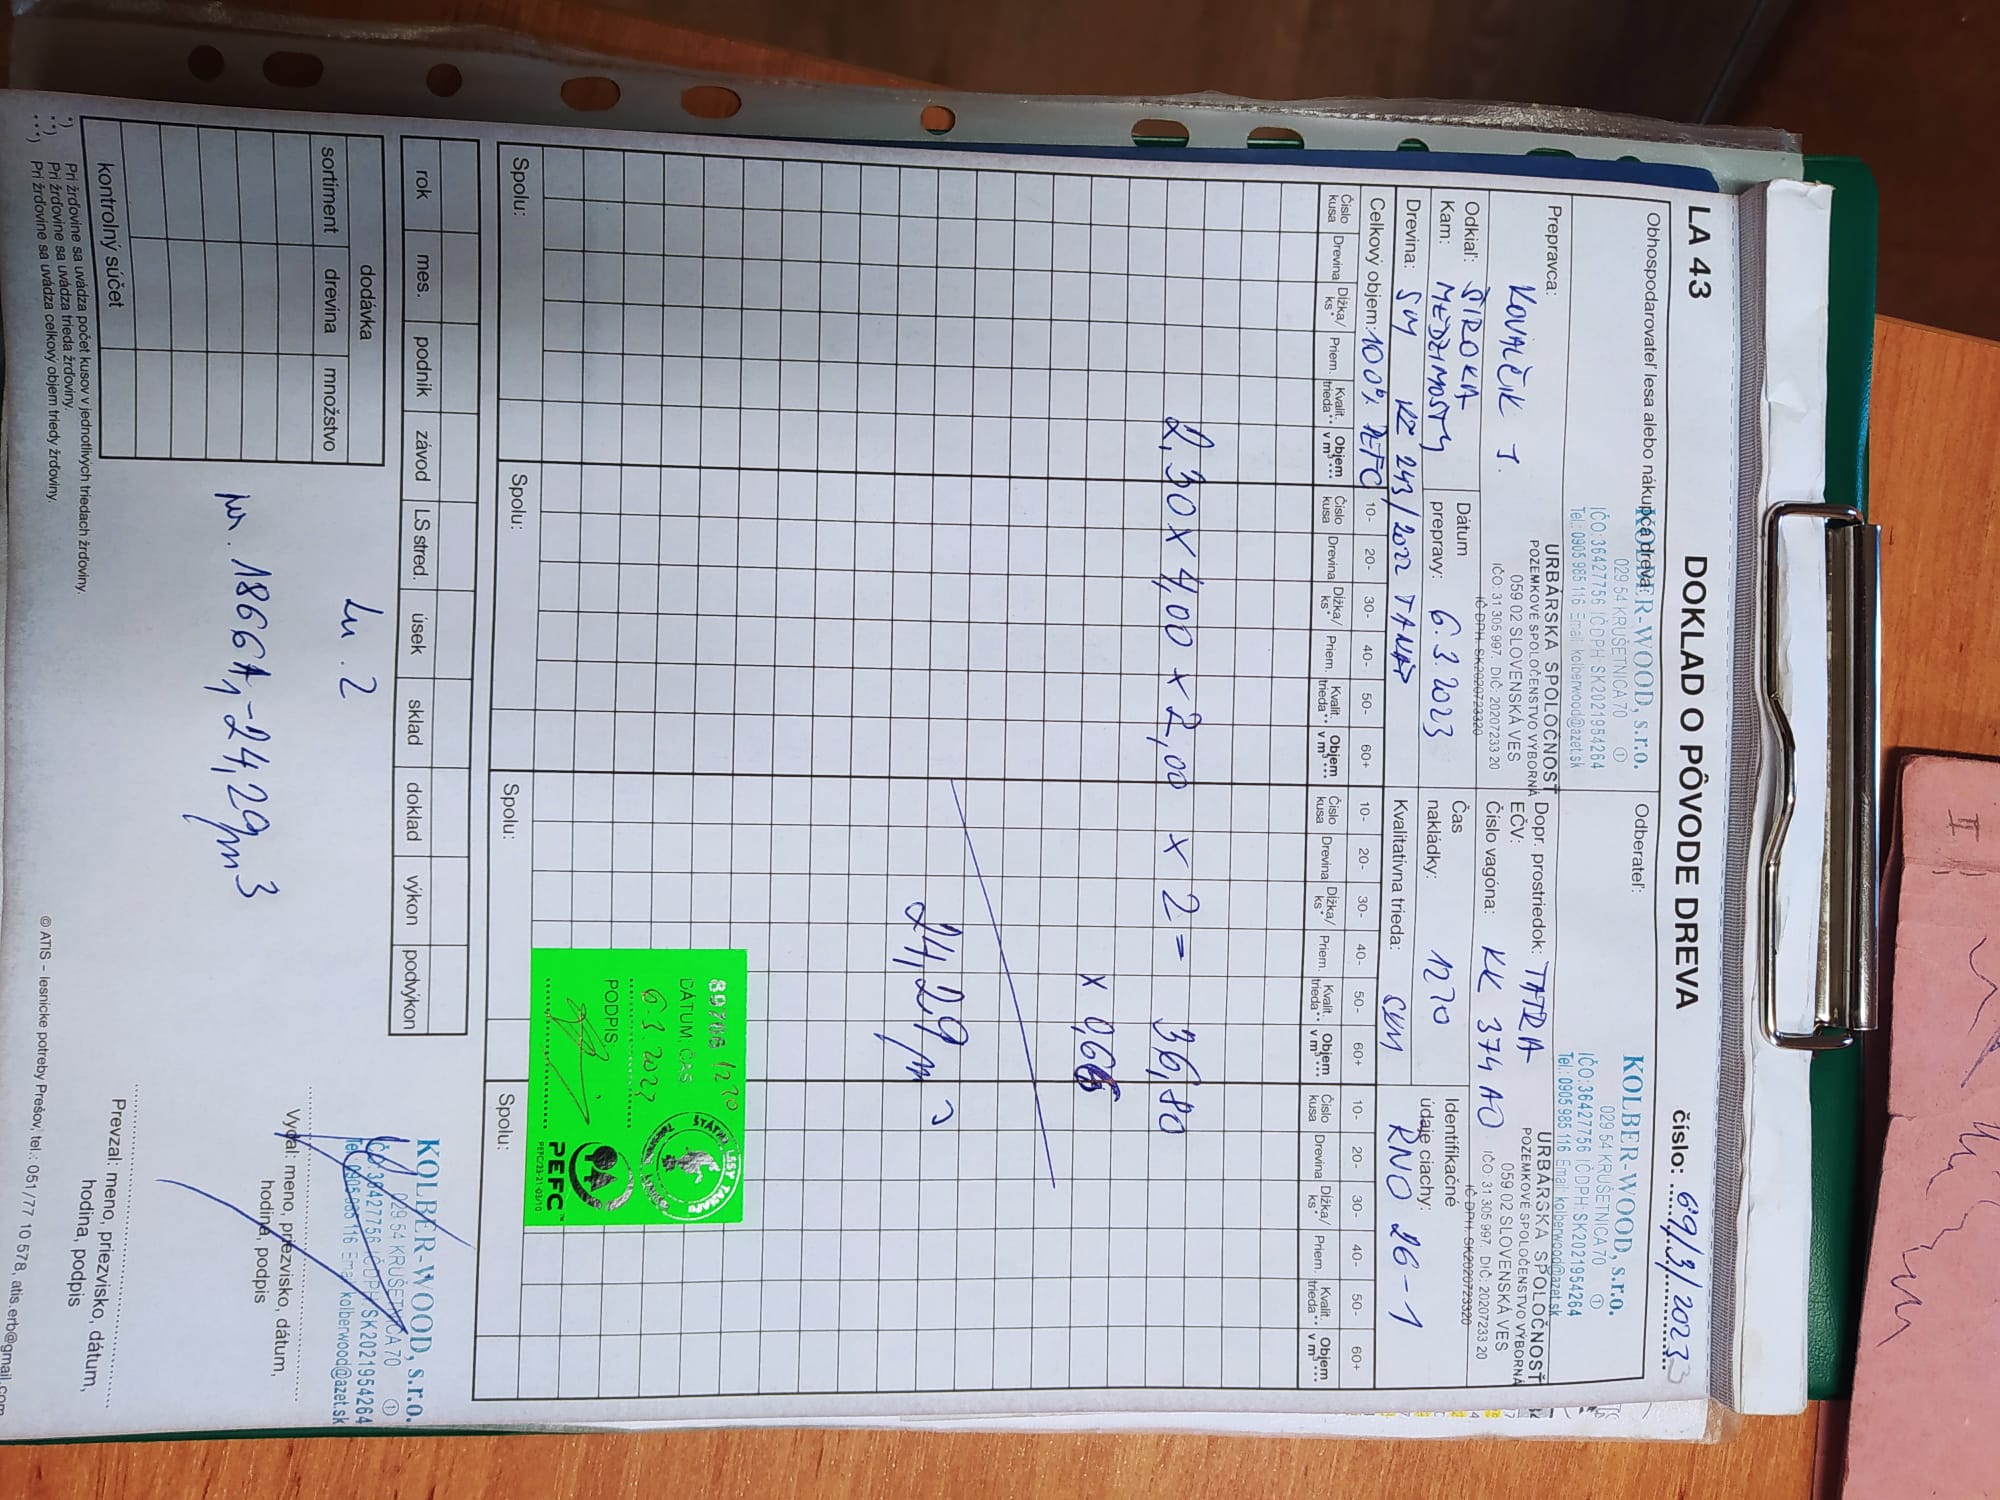 LA 43 DOKLAD O PÔVODE DREVA číslo: 69/3/2023
Obhospodarovateľ lesa alebo nákupca dreva:
KOLBER-WOOD, s.r.o.
029 54 KRUŠETNICA 70 ①
IČO:36427756 IČDPH:SK2021954264
Tel.: 0905 985 116 Email: kolberwood@azet.sk
URBÁRSKA SPOLOČNOSŤ
POZEMKOVÉ SPOLOČENSTVO VÝBORNÁ
059 02 SLOVENSKÁ VES
IČO: 31 305 997, DIČ: 2020723320
IČ DPH: SK2020723320
Odberateľ:
KOLBER-WOOD, s.r.o.
029 54 KRUŠETNICA 70 ①
IČO:36427756 IČDPH:SK2021954264
Tel.: 0905 985 116 Email: kolberwood@azet.sk
URBÁRSKA SPOLOČNOSŤ
POZEMKOVÉ SPOLOČENSTVO VÝBORNÁ
059 02 SLOVENSKÁ VES
IČO: 31 305 997, DIČ: 2020723320
IČ DPH: SK2020723320
Prepravca: KOVALČIK J.
Dopr. prostriedok: TATRA
EČV:
Číslo vagóna: KK 374 AO
Odkiaľ: ŠIROKA
Kam: MEDZIMOSTY
Dátum prepravy: 6.3.2023
Čas nakládky: 1270
Identifikačné údaje ciachy: RNO 26-1
Drevina: SM KČ 243/2022 TANAP
Kvalitatívna trieda:
Celkový objem: 100% PEFC
10- 20- 30- 40- 50- 60+ 10- 20- 30- 40- 50- 60+ 10- 20- 30- 40- 50- 60+
Číslo kusa Drevina Dĺžka/ks* Priem. Kvalit. trieda** Objem v m³*** Číslo kusa Drevina Dĺžka/ks* Priem. Kvalit. trieda** Objem v m³*** Číslo kusa Drevina Dĺžka/ks* Priem. Kvalit. trieda** Objem v m³*** Číslo kusa Drevina Dĺžka/ks* Priem. Kvalit. trieda** Objem v m³***
2,30 x 4,00 x 2,00 x 2 = 36,80
x 0,66
24,29 m3
89706 1270
DÁTUM, ČAS
6.3.2023
PODPIS:
ŠTÁTNE LESY TANAPU
PEFC™
PEFC/23-21-02/10
Spolu: Spolu: Spolu: Spolu:
rok mes. podnik závod LS stred. úsek sklad doklad výkon podvýkon
dodávka
sortiment drevina množstvo
kontrolný súčet
2
1866 24,29 m3
KOLBER-WOOD, s.r.o.
029 54 KRUŠETNICA 70 ①
IČO:36427756 IČDPH:SK2021954264
Tel.: 0905 985 116 Email: kolberwood@azet.sk
Vydal: meno, priezvisko, dátum,
hodina, podpis
Prevzal: meno, priezvisko, dátum,
hodina, podpis
*) Pri žrďovine sa uvádza počet kusov v jednotlivých triedach žrďoviny.
**) Pri žrďovine sa uvádza trieda žrďoviny.
***) Pri žrďovine sa uvádza celkový objem triedy žrďoviny.
© ATIS – lesnícke potreby Prešov, tel.: 051/77 10 578, atis.erb@gmail.com
II